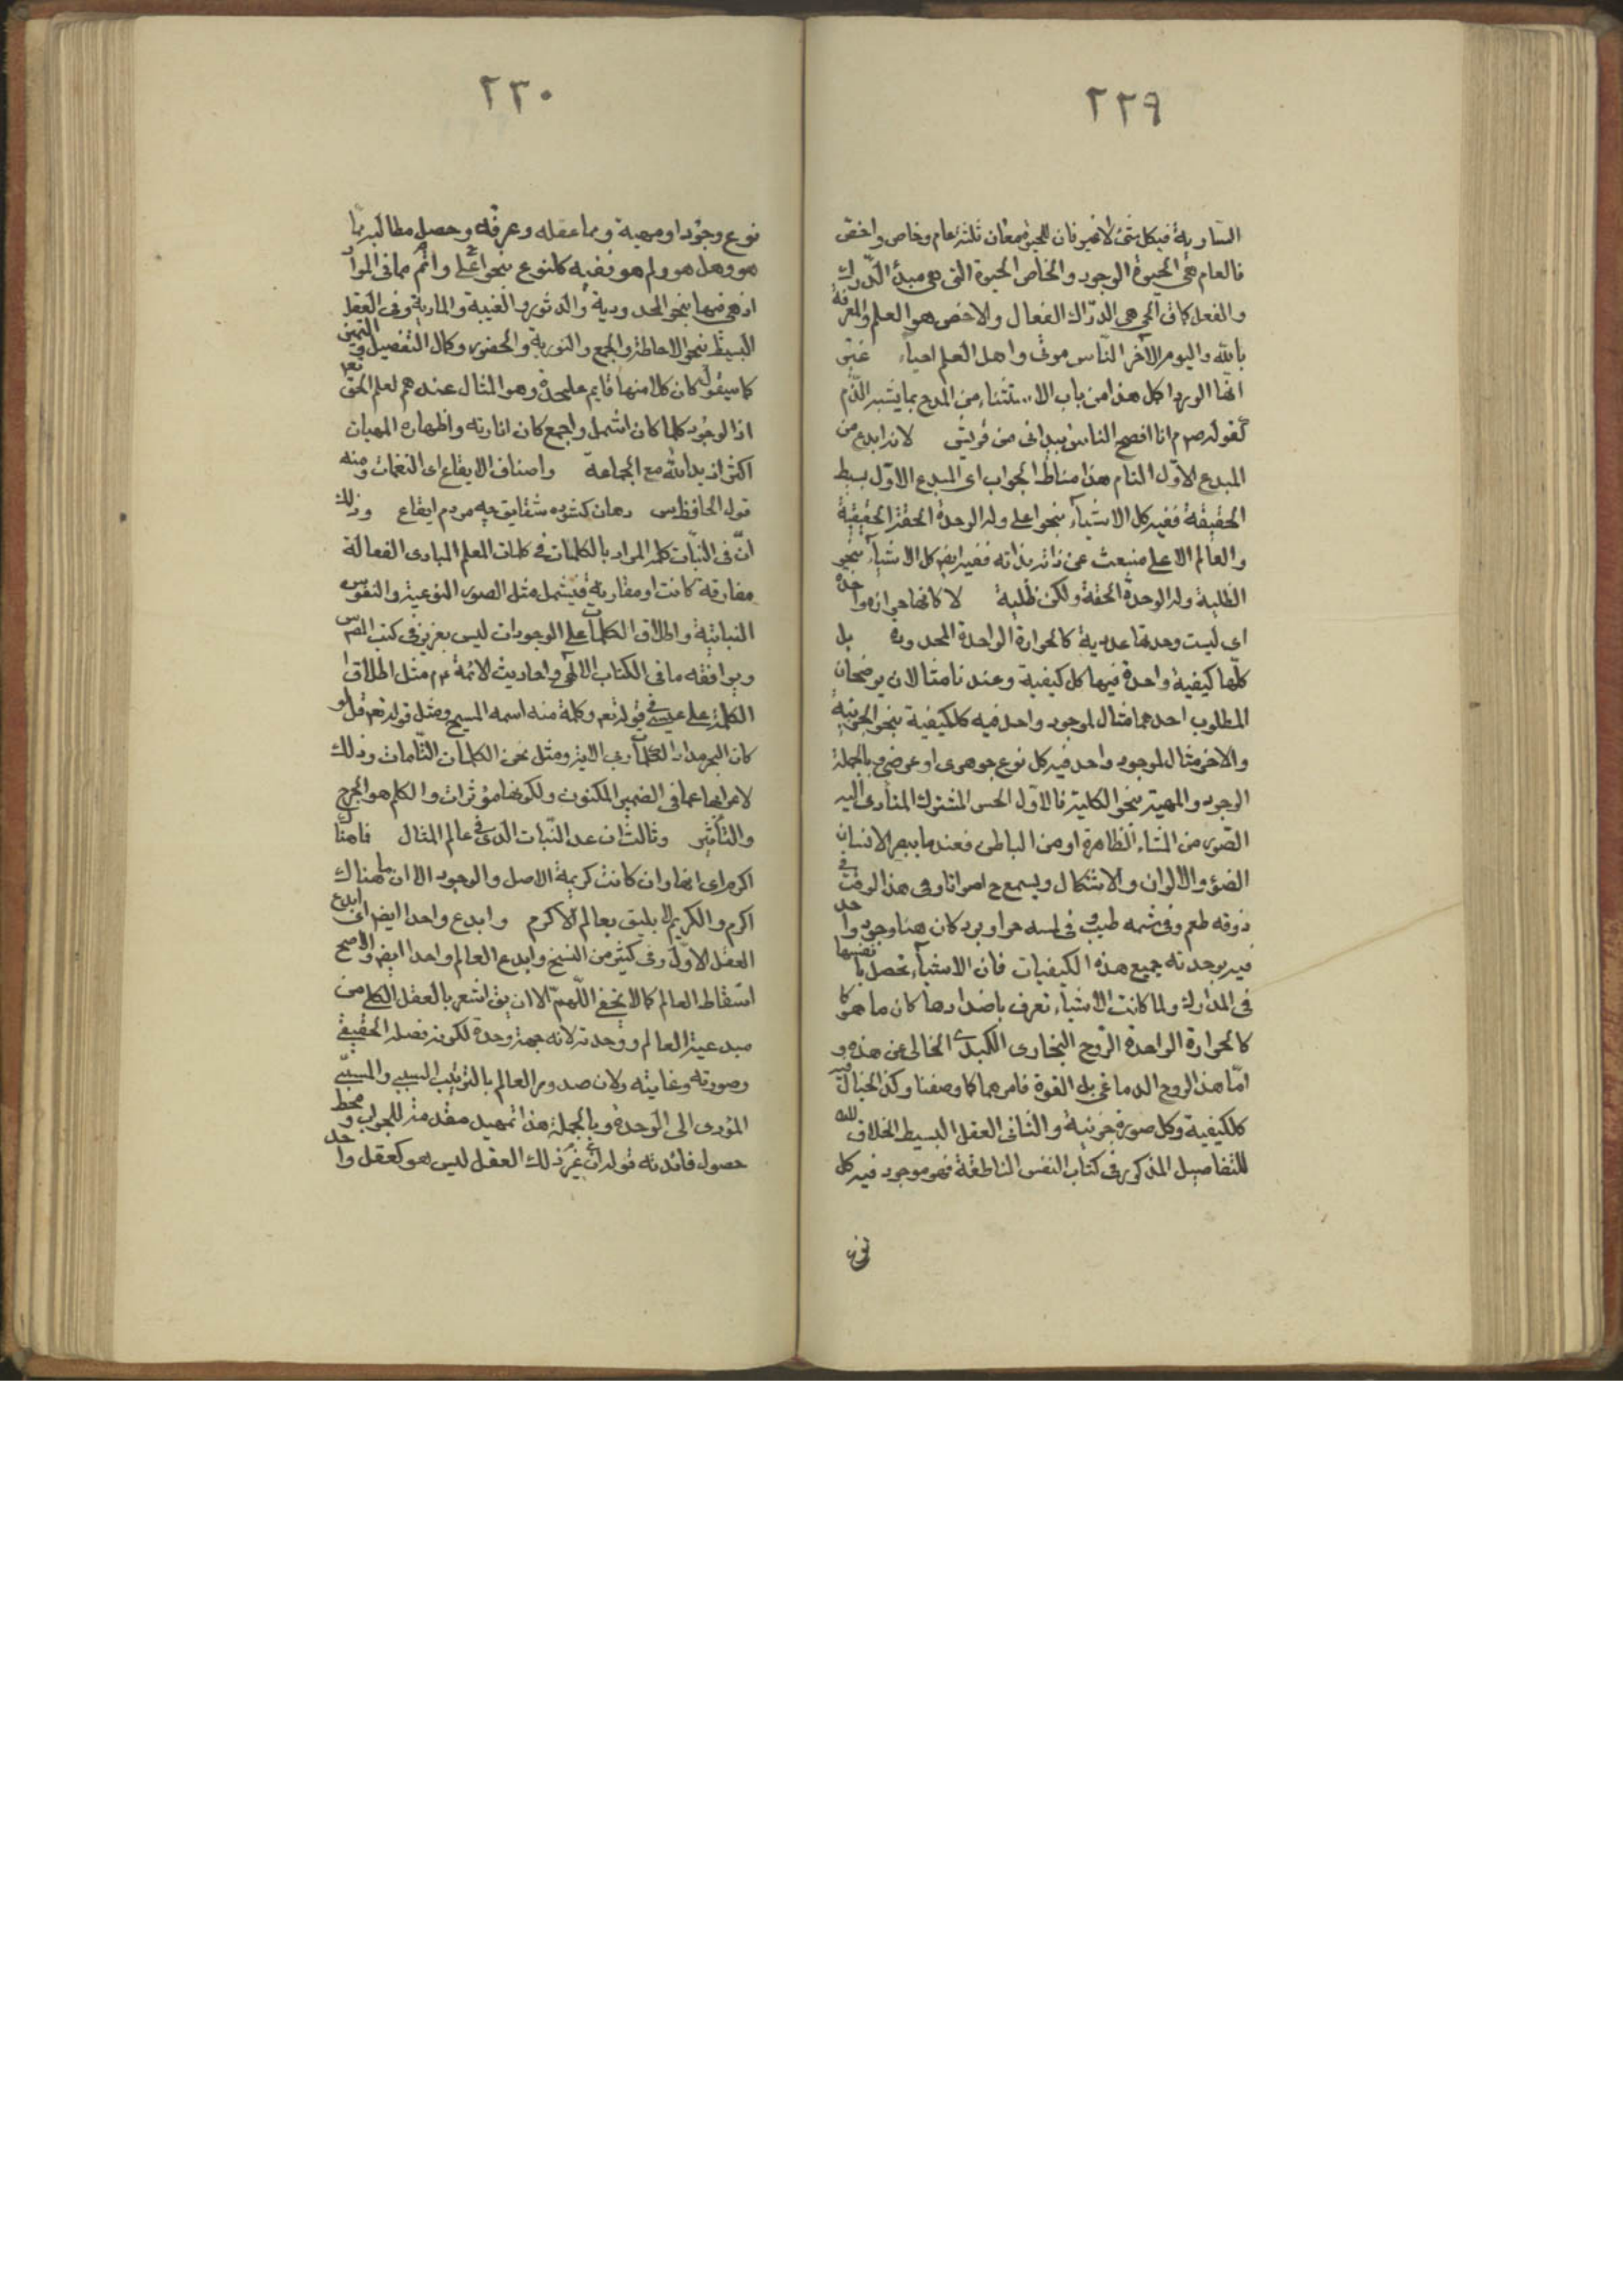 ٢٢٩
السارية فى كل شئ لا غير فان للحيوة معان ثلثة عام وخاص واخص
فالعام هى الحيوة الوجود والخاص الحيوة التى هى مبدأ الدرك
والفعل كما فى الحى هى الدرّاك الفعال والاخص هو العلم والمعرفة
بالله واليوم الآخر الناس موتى واهل العلم احياء
انها الورد اكل هذا من باب الاستثناء من المدح بما يشبه الذّم
كقوله ص م انا افصح الناس بيدانى من قريش لانه ابدع من
المبدع الاوّل التام هذا مناط الجواب اى المبدع الاوّل بسيط
الحقيقة ففيه كل الاشياء بنحو اعلى وله الوحدة الحقة الحقيقية
والعالم الاعلى منبعث عن ذاته بذاته ففيه ايضم كل الاشياء بنحو
الظلية وله الوحدة الحقة ولكن ظلية لا كانها حرارة واحدة
اى ليست وحدتها عددية كالحرارة الواحدة المحدودة بل
كلّها كيفية واحدة فيها كل كيفية وعندنا مثالان يوضحان
المطلوب احدهما مثال لموجود واحد فيه كل كيفية بنحو الجزئية
والاخر مثال لموجود واحد فيه كل نوع جوهرى او عرضى وبالجملة
الوجود والمهية بنحو الكلية فالاوّل الحس المشترك المتأدى اليه
الصّور من المشاعر الظاهرة او من الباطن فعند ما يبصر الانسان
الضوء والالوان والاشكال ويسمع ح اصواتا وفى هذا الوقت فى
ذوقه طعم وفى شمه طيب وفى لمسه حر او برد كان هنا وجود واحد
فيه يوجد ته جميع هذه الكيفيات فان الاشياء تحصل بانفسها
فى المدارك ولما كانت الاشياء تعرف باضدادها كان ما هو كا
كالحرارة الواحدة الروح البخارى الكبدى الخالى عن هذه و
امّا هذا الروح الدماغى بل القوة فامرهما كما وصفنا وكذا الخيال فيه
كل كيفية وكل صورة جزئية والثانى العقل البسيط الخلاق
للتفاصيل المذكور فى كتاب النفس الناطقة فهو موجود فيه كل
نوع
٢٣٠
نوع وجودا ومهية ومما عقله وعرفه وحصل مطالبه بما
هو وهل هو ولم هو ففيه كل نوع بنحو اعلى واتم مما فى المواد
اذ هى فيها بنحو المحدودية والدثور والغيبة والمادية وفى العقل
البسيط بنحو الاحاطة والجمع والنورية والحضور وكمال التفصيل والتميز
كما سيقول كان كلا منها قايم عليحدة وهو المثال عندهم لعلم الحق تعم
اذ الوجود كلما كان اشمل واجمع كان انارته واظهاره المهيات
اكثر اذ يد الله مع الجماعة واصناف الايقاع اى النغمات ومنه
قول الحافظ س دهان كشوده شقايق چو مردم ايقاع وذلك
انّ فى النبات كلمه المراد بالكلمات فى كلمات المعلم المبادى الفعالة
مفارقة كانت او مقارنة فيشمل مثل الصور النوعية والنفوس
النباتية واطلاق الكلمات على الوجودات ليس بعزيز فى كتب القوم س
ويوافقه ما فى الكتاب الالهى واحاديث الائمة ع م مثل اطلاق
الكلمة على عيسى فى قوله تعم وكلمة منه اسمه المسيح ومثل قوله تعم قل لو
كان البحر مدادا لكلمات ربى الاية ومثل نحن الكلمات التّامات وذلك
لاعرابها عما فى الضمير المكنون ولكونها مؤثرات والكلم هو الجرح
والتأثير وثالث ان عد النّبات الذى فى عالم المثال فامثا
اكرم اى انها وان كانت كريمة الاصل والوجود الا ان ما هناك
اكرم والكريم لا يليق بعالم الاكرم وابدع واحدا ايضم اى ابدع
العقل الاوّل وفى كثير من النسخ وابدع العالم واحدا ايضم والاصح
اسقاط العالم كما لا يخفى اللّهمّ الا ان يق اشعر بالعقل الكلى من
مبدعية العالم ووحدته لانه جهة وحدة لكونه فصله الحقيقى
وصورته وغايته ولان صدور العالم بالترتيب السببى والمسببى
المؤدى الى الوحدة وبالجملة هذا تمهيد مقدمة للجواب ومحط
حصول فائدته قوله ان غير ذلك العقل ليس هو كعقل واحد